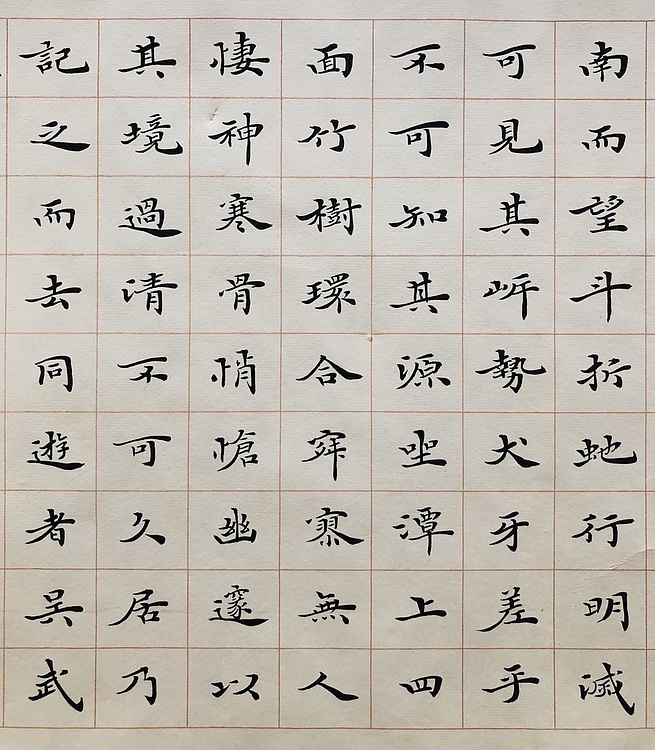 南而望斗折虵行明滅
可見其岸勢犬牙差㸦
不可知其源坐潭上四
面竹樹環合寂寥無人
悽神寒骨悄愴幽邃以
其境過清不可久居乃
記之而去同遊者吳武